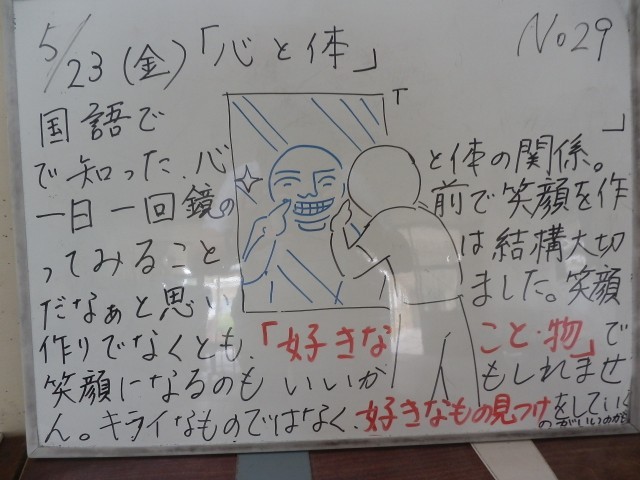 5/23(金)「心と体」 No29
国語で「 」
で知った、心と体の関係。
一日一回鏡の前で笑顔を作
ってみることは結構大切
だなぁと思いました。笑顔
作りでなくとも、「好きなこと・物」で
笑顔になるのもいいかもしれませ
ん。キライなものではなく、好きなもの見つけをしていく
のがいいのかも